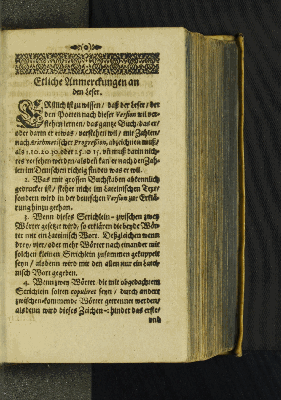 Etliche Anmerckungen an
den Leser.
ERstlich ist zu wissen / daß der Leser / der
den Poeten nach dieser Version wil ver-
stehen lernen / das gantze Buch / das er
oder darin er etwas / verstehen wil / mit Zahlen /
nach Arithmetischer Progression, abzeichnen muß /
als 1. 10. 20. 30. oder 5. 10. 15.
ter im Deutschen richtig finden was er wil.
2. Was mit grossen Buchstaben absonnlich
gedrucket ist / stehet nicht im Lateinischen Text /
sondern wird in der deutschen Version zur Erklä-
rung hinzu gethan.
3. Wenn dieses Strichlein - zwischen zwey
Wörter gesetzt wird, so erklären die beyde Wör-
ter nur ein Lateinisch Wort. Deßgleichen wenn
drey / vier / oder mehr Wörter nach einander mit
solchen kleinen Strichlein zusammen gekuppelt
seyn / alsdenn wird mit den allen nur ein Latei-
nisch Wort gegeben.
4. Wenn zwey Wörter, die mit obgedachtem
Strichlein solten copuliret seyn / durch andere
zwischenkommende Wörter getrennet werden /
alsdenn wird dieses Zeichen -: hinder das erste /
und